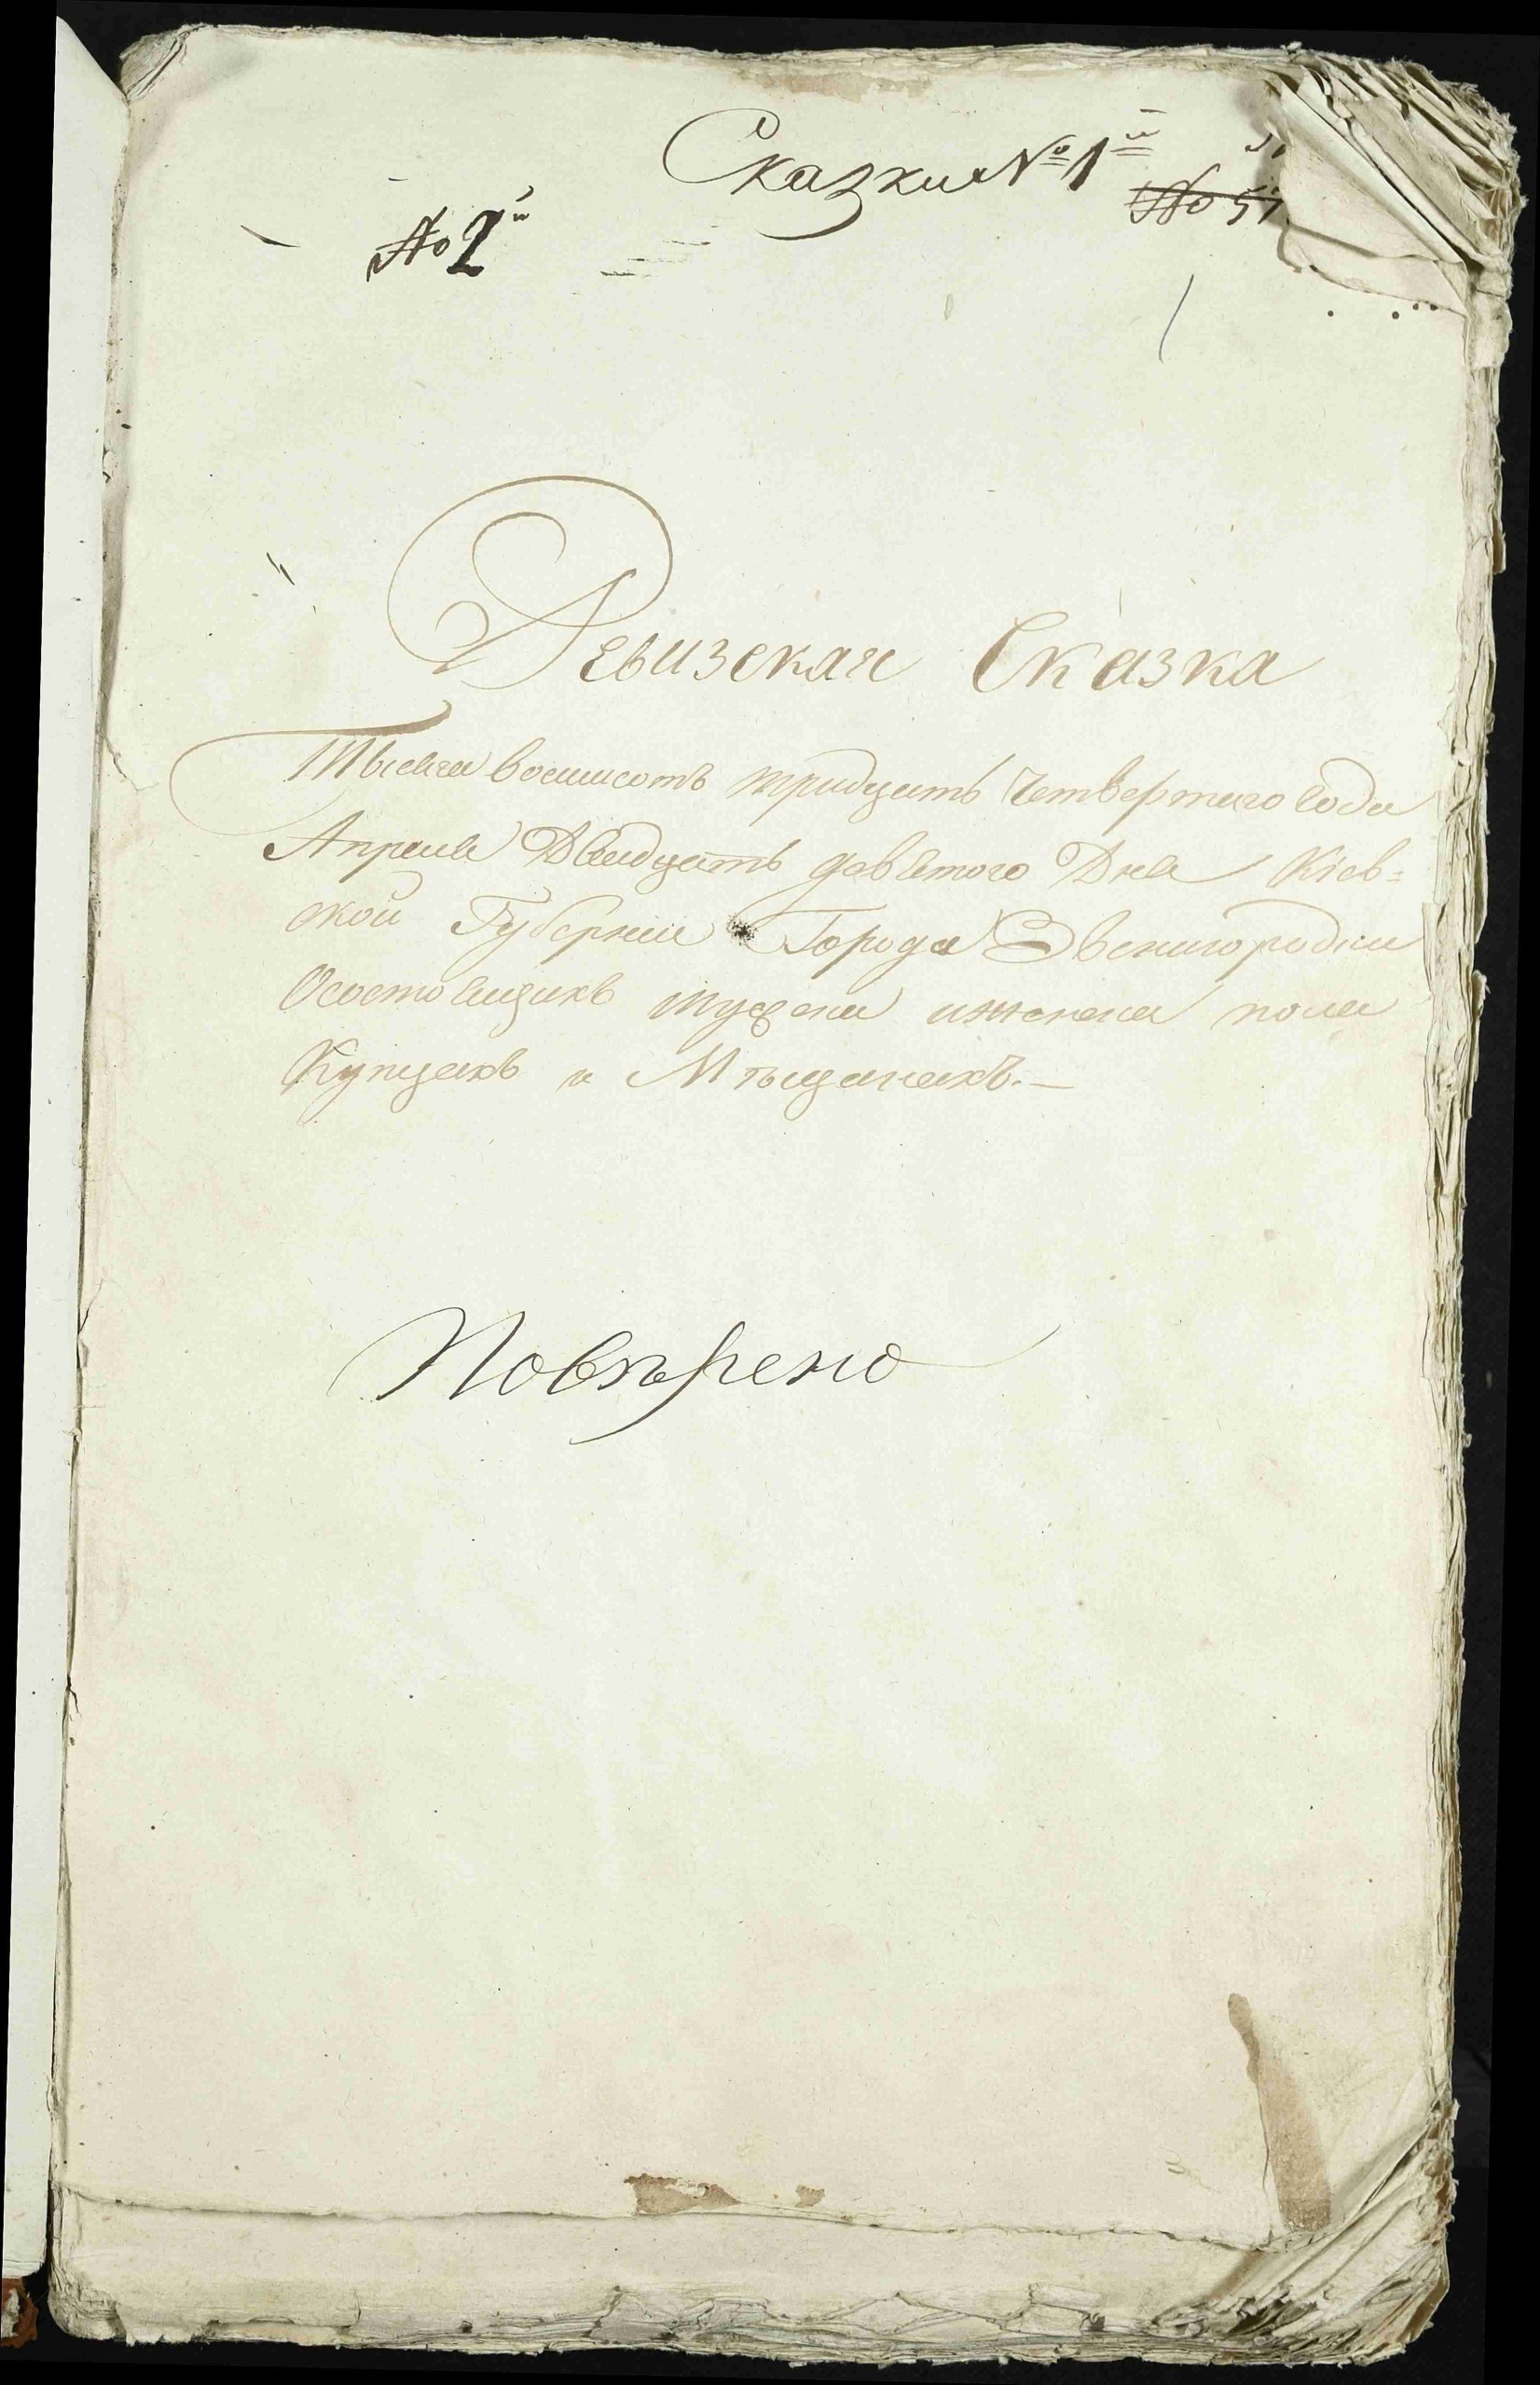 Сказки № 1й
№ 2й
№ 57
Ревизская Сказка
Тысяча восимсотъ тридцать Четвертаго года
Апреля Двадцать девятого Дня Кіев=
ской Губерніи Города Звенигородки
Осостоящихъ мужска иженска пола
Купцахъ и Мѣщанахъ.—
Повѣрено